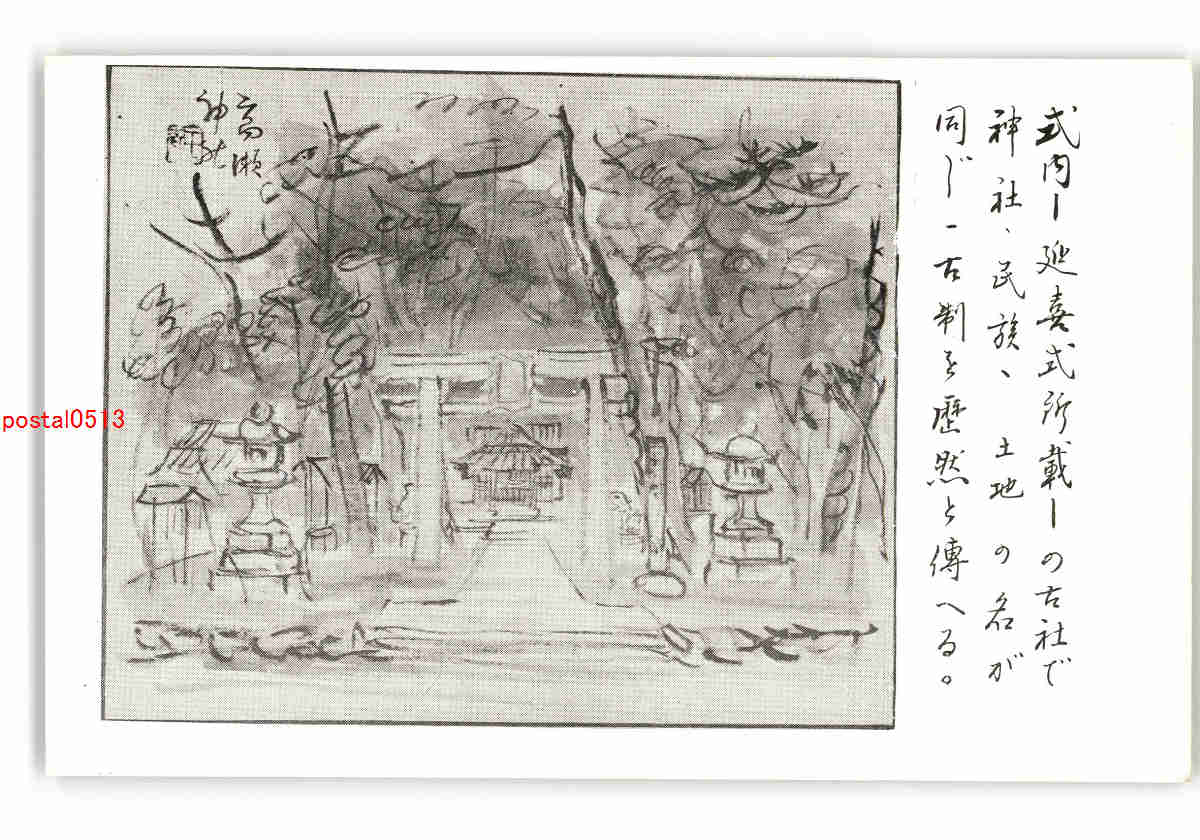 式内ー延喜式所載ーの古社で
神社、民族、土地の名が
同じー古制を歴然と傳へる。
高瀬
神社
postal0513